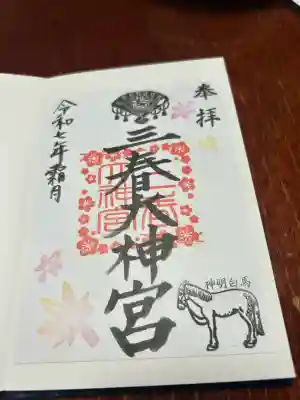 奉拝
三春大神宮
三春大神宮
令和七年霜月
神明白馬